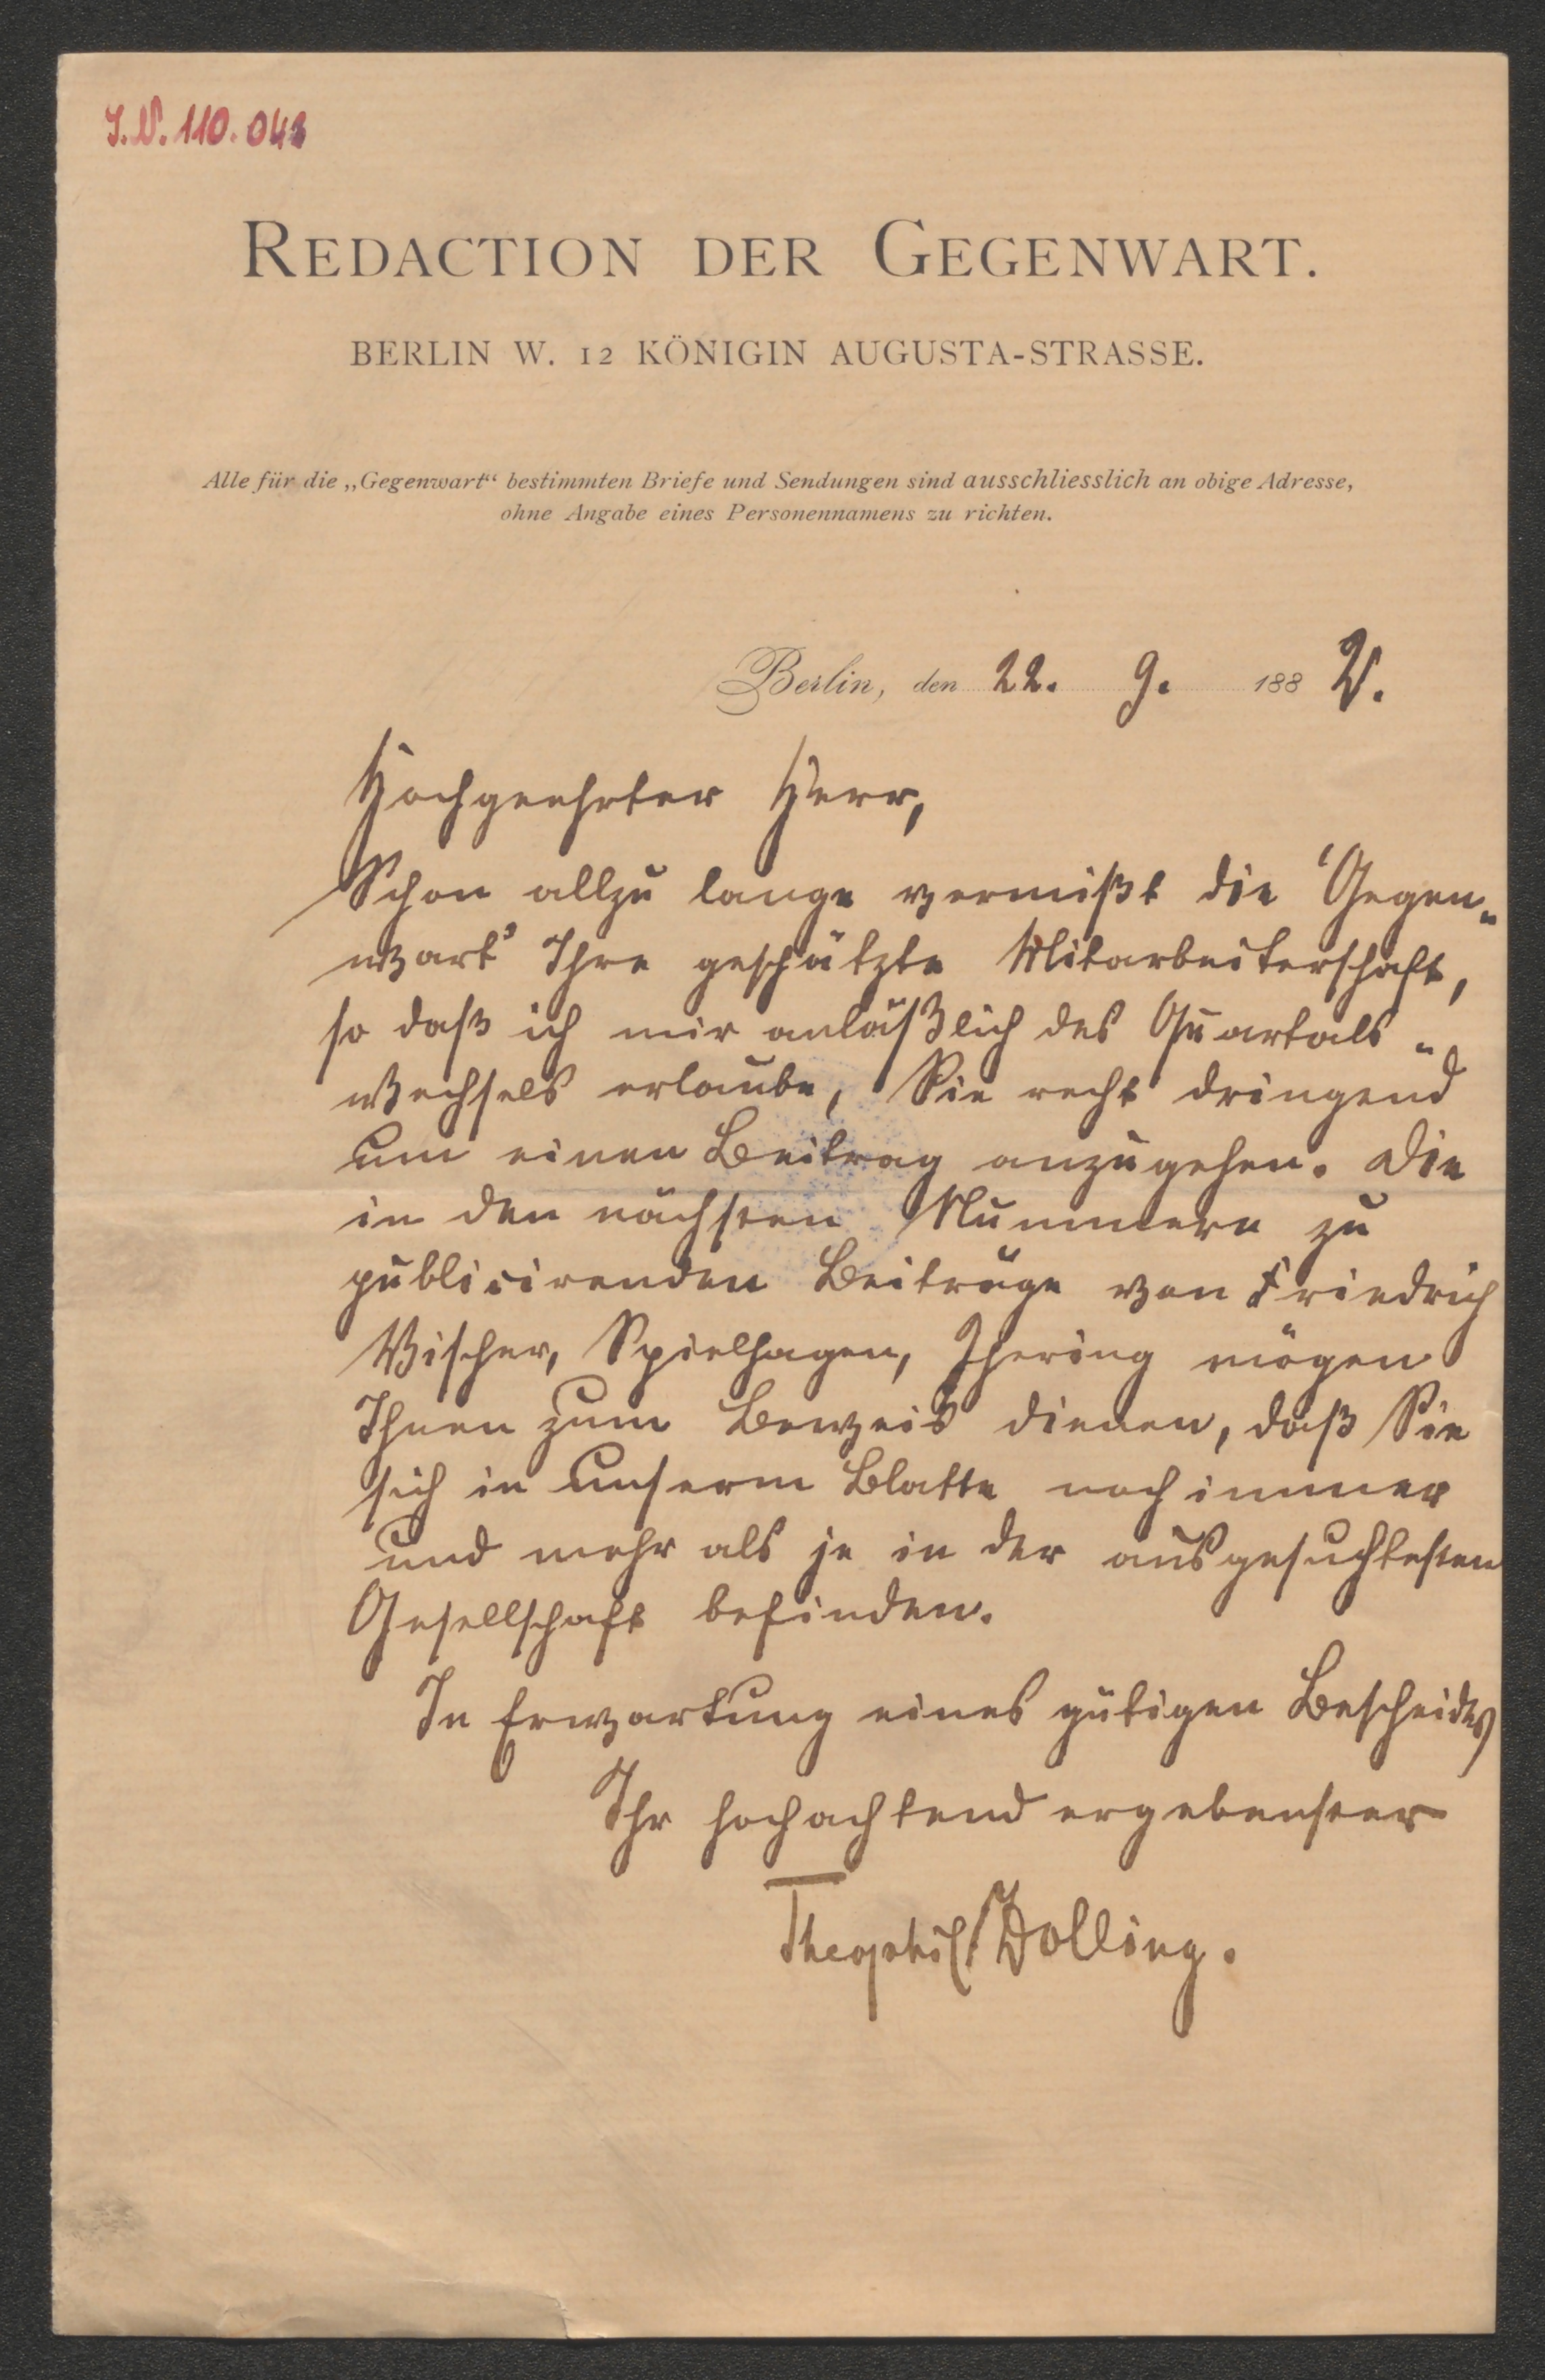 I.N. 110.048
REDACTION DER GEGENWART.
BERLIN W. 12 KÖNIGIN AUGUSTA-STRASSE.
Alle für die „Gegenwart“ bestimmten Briefe und Sendungen sind ausschliesslich an obige Adresse,
ohne Angabe eines Personennamens zu richten.
Berlin, den 22. 9. 188 2.
Hochgeehrter Herr,
Schon allzu lange vermißt die 'Gegen-
wart' Ihre geschätzte Mitarbeiterschaft,
so daß ich mir anläßlich des Quartals-
wechsels erlaube, Sie recht dringend
um einen Beitrag anzugehen. Die
in den nächsten Nummern zu
publicirenden Beiträge von Friedrich
Vischer, Spielhagen, Jhering mögen
Ihnen zum Beweis dienen, daß Sie
sich in unserm Blatte noch immer
und mehr als je in der ausgesuchtesten
Gesellschaft befinden.
In Erwartung eines gütigen Bescheides
Ihr hochachtend ergebenster
Theophil Zolling.